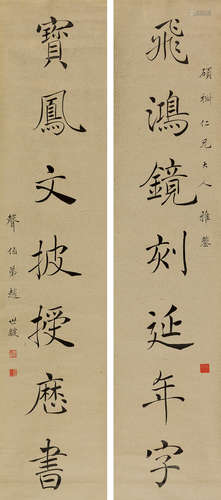 碩樹仁兄大人雅鑒
飛鴻鏡刻延年字
寶鳳文披授歷書
聲伯弟趙世駿